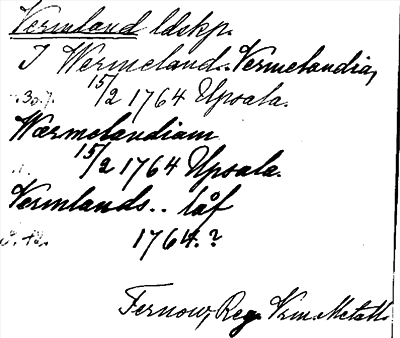 Vermland ldskp.
I Wermeland. Vermelandia,
s. 307. 15/2 1764 Upsala.
Wærmelandiam
15/2 1764 Upsala.
Vermlands.. låf
1764.?
Fernow, Reg. Vrm.